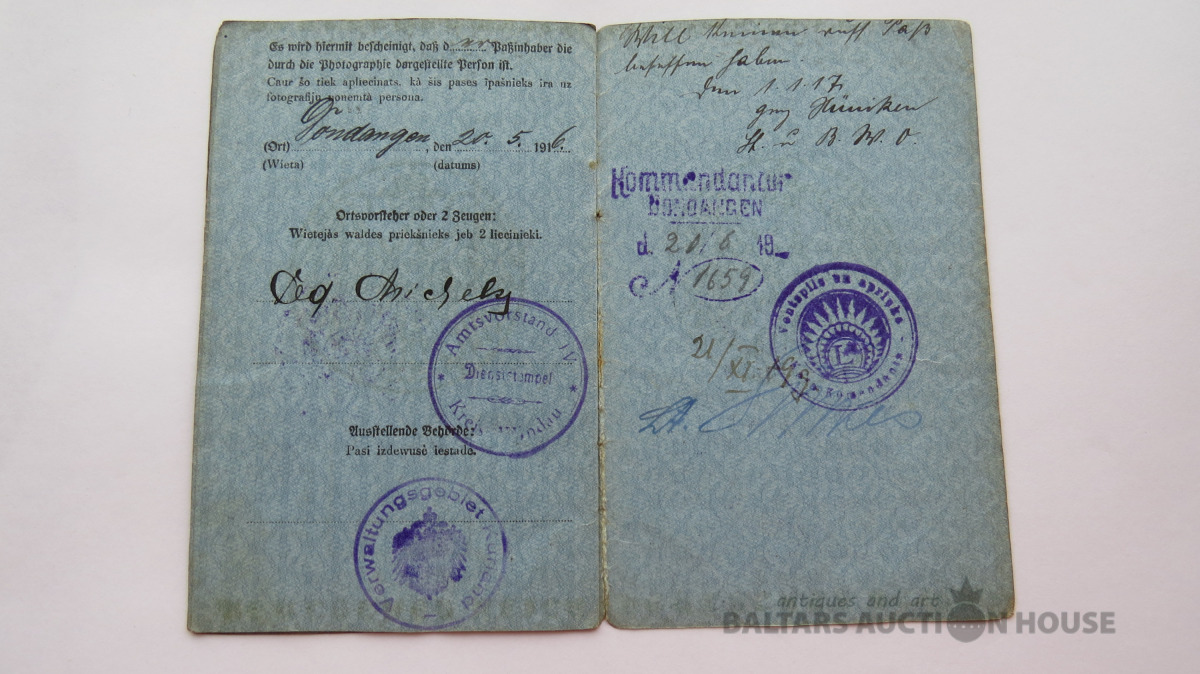 Es wird hiermit bescheinigt, daß d er Paßinhaber die
durch die Photographie dargestellte Person ist.
Caur šo tiek apliecinats, kà šis pases ìpašnieks ira uz
fotografiju ņonemtà persona.
(Ort) Dondangen, den 20. 5. 1916.
(Wieta) (datums)
Ortsvorsteher oder 2 Zeugen:
Wietejàs waldes priekšnieks jeb 2 liecinieki.
Amtsvorstand IV
Dienststempel
Ausstellende Behörde:
Pasi izdewusè iestade.
Verwaltungsgebiet Kurland
Paß
haben.
den 1. 1. 17
gez Hünicken
Lt. u B. W. O.
Kommandantur
DONDANGEN
d. 20/6 19
N 1659
Ventspils un apriņķa
Komendants
21/XI 19
Lt.
antiques and art
BALTARS AUCTION HOUSE